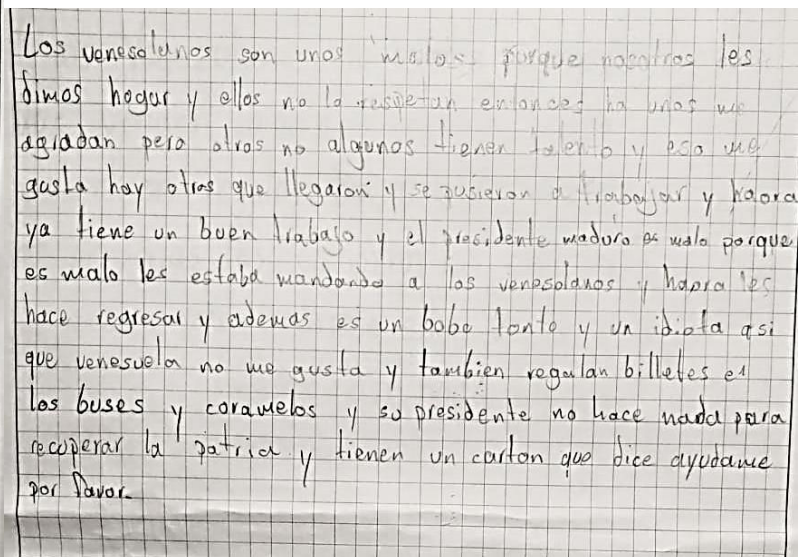 Los venesolanos son unos malos porque nosotros les
dimos hogar y ellos no lo respetan entonces ha unos me
agradan pero otros no algunos tienen talento y eso me
gusta hay otros que llegaron y se pusieron a trabajar y haora
ya tiene un buen trabajo y el presidente maduro es malo porque
es malo les estaba mandando a los venesolanos y haora les
hace regresar y ademas es un bobo tonto y un idiota asi
que venesuela no me gusta y tambien regalan billetes en
los buses y caramelos y su presidente no hace nada para
recuperar la patria y tienen un carton que dice ayudame
por favor